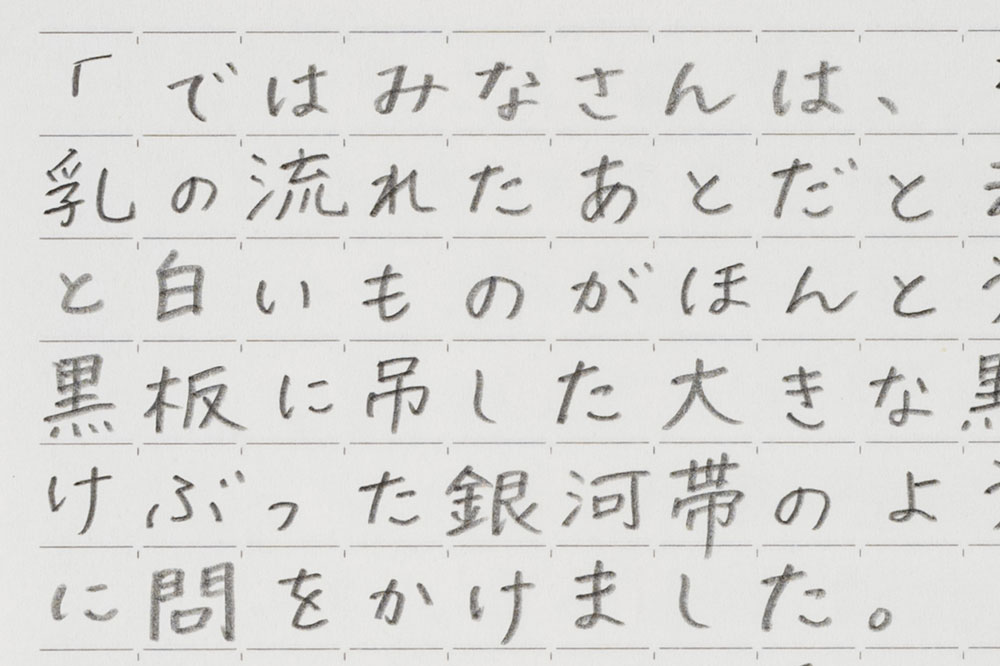 「ではみなさんは、
乳の流れたあとだと
と白いものがほんとう
黒板に吊した大きな黒
けぶった銀河帯のよう
に問をかけました。